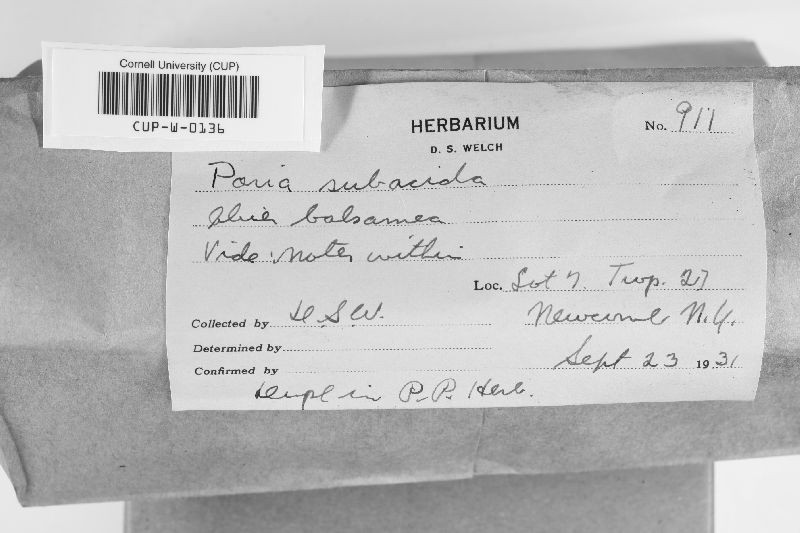 Cornell University (CUP)
CUP-W-0136
HERBARIUM
No. 911
D. S. WELCH
Poria subacida
Abies balsamea
Vide: Notes within
Loc. Lot 7. Twp. 27
Collected by D. S. W.
Newcomb N.Y.
Determined by
Sept 23 1931
Confirmed by
Dupl in P.P. Herb.